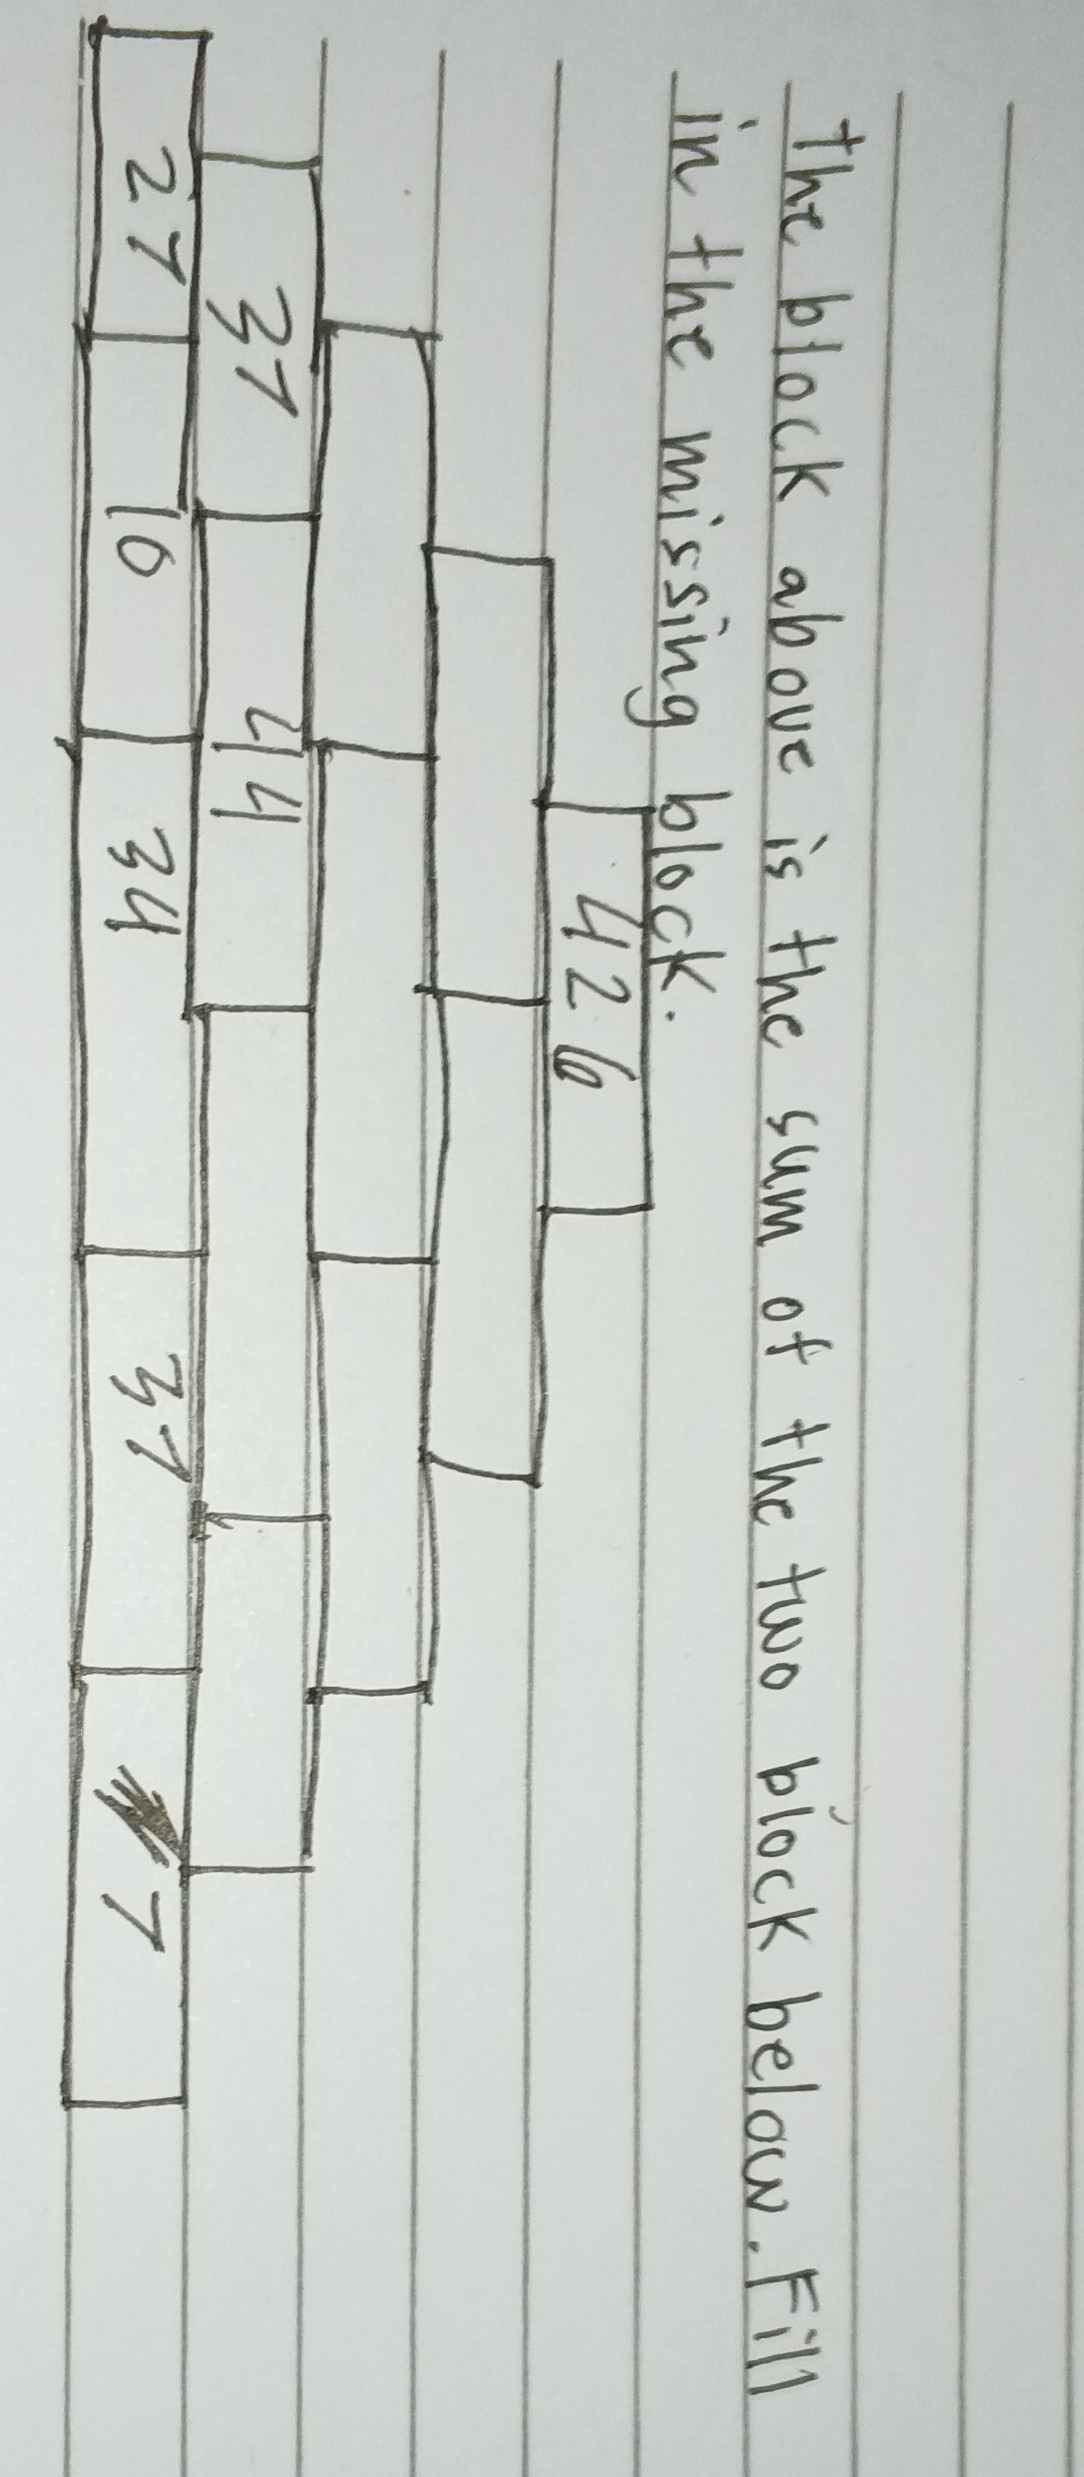 the block above is the sum of the two block below. Fill
in the missing block.
426
37 44
27 10 34 37 7